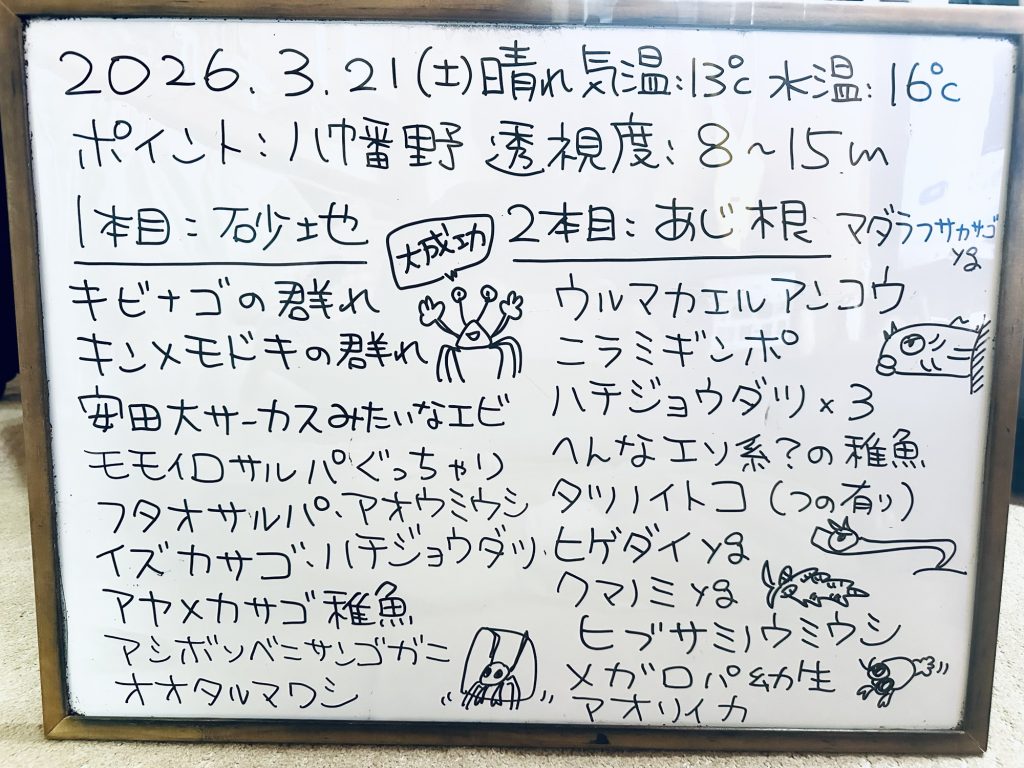 2026.3.21(土)晴れ 気温:13℃ 水温:16℃
ポイント:八幡野 透視度:8~15m
1本目:砂地
大成功
キビナゴの群れ
キンメモドキの群れ
安田大サーカスみたいなエビ
モモイロサルパぐっちゃり
フタオサルパ・アオウミウシ
イズカサゴ・ハチジョウダツ
アヤメカサゴ稚魚
アシボソベニサンゴガニ
オオタルマワシ
2本目:あじ根
マダラフサカサゴ
yg
ウルマカエルアンコウ
ニラミギンポ
ハチジョウダツ×3
へんなエソ系?の稚魚
タツノイトコ(つの有り)
ヒゲダイyg
クマノミyg
ヒブサミノウミウシ
メガロパ幼生
アオリイカ